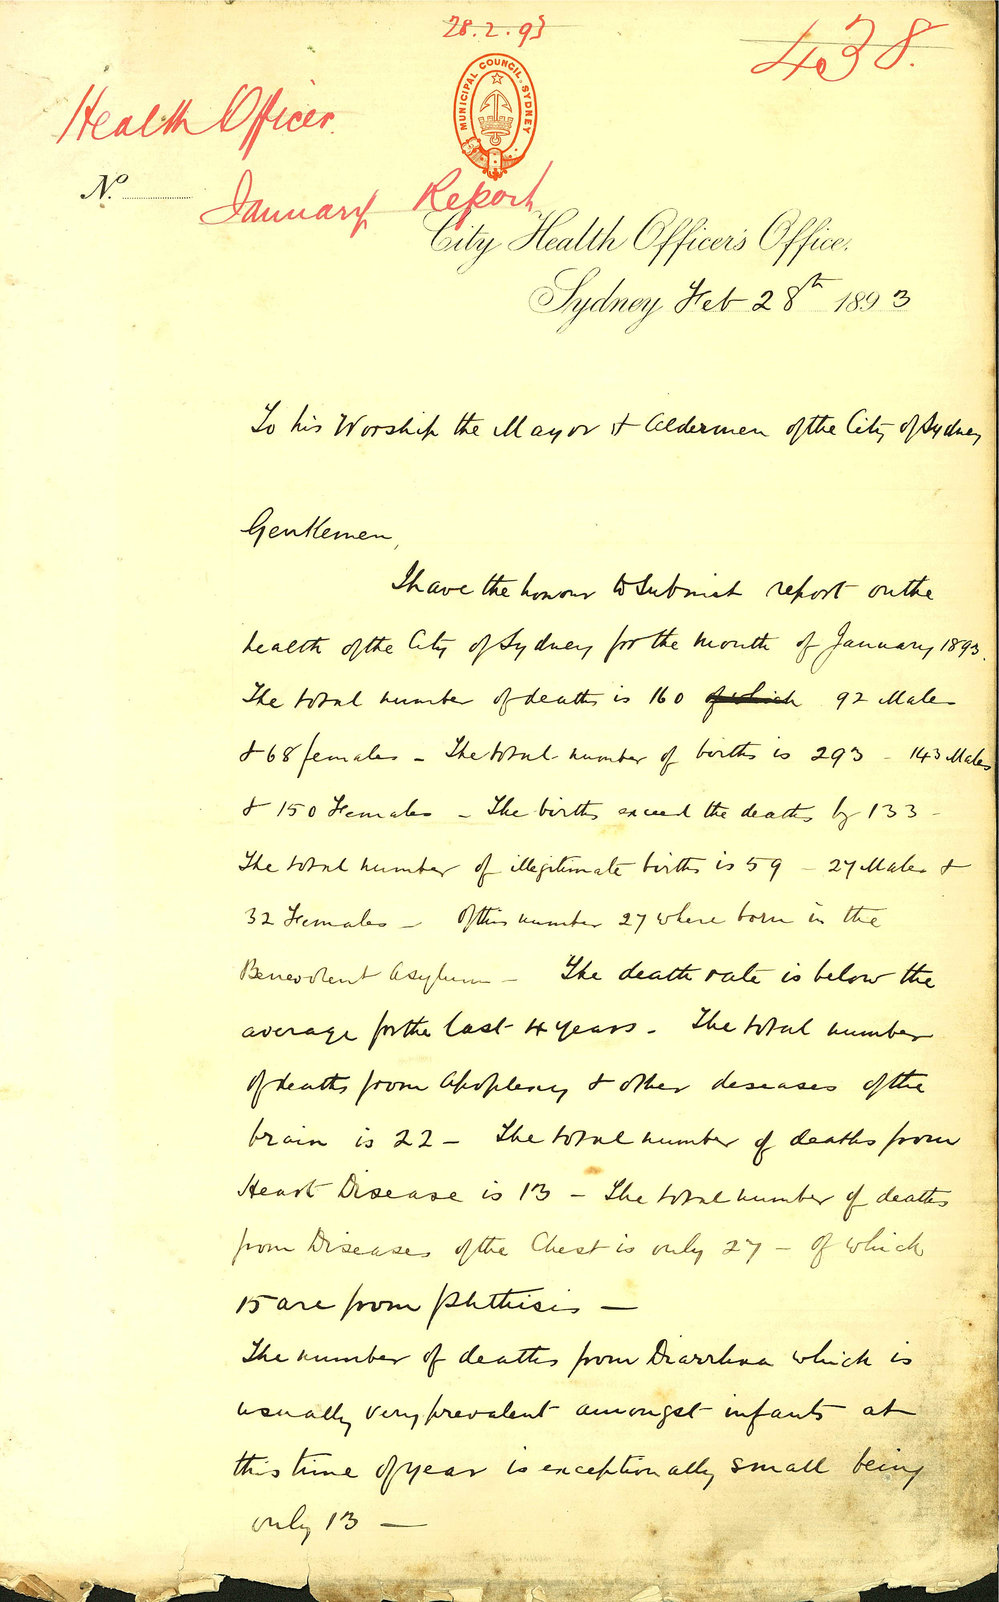 28.2.93
438.
MUNICIPAL COUNCIL. SYDNEY
Health Officer.
No.
January Report
City Health Officer's Office.
Sydney Feb 28th 1893
To his Worship the Mayor & Aldermen of the City of Sydney
Gentlemen,
I have the honour to Submit report on the
health of the City of Sydney for the month of January 1893.
The total number of deaths is 160 of which 92 Males
& 68 females – The total number of births is 293 – 143 Males
& 150 Females – The births exceed the deaths by 133 –
The total number of illegitimate births is 59 – 27 Males &
32 Females – Of this number 27 where born in the
Benevolent Asylum – The death rate is below the
average for the last 4 years – The total number
of deaths from Apoplexy & other deseases of the
brain is 22 – The total number of deaths from
Heart Disease is 13 – The total number of deaths
from Diseases of the Chest is only 27 – of which
15 are from phthisis –
The number of deaths from Diarrhea which is
usually very prevalent amongst infants at
this time of year is exceptionally small being
only 13 –